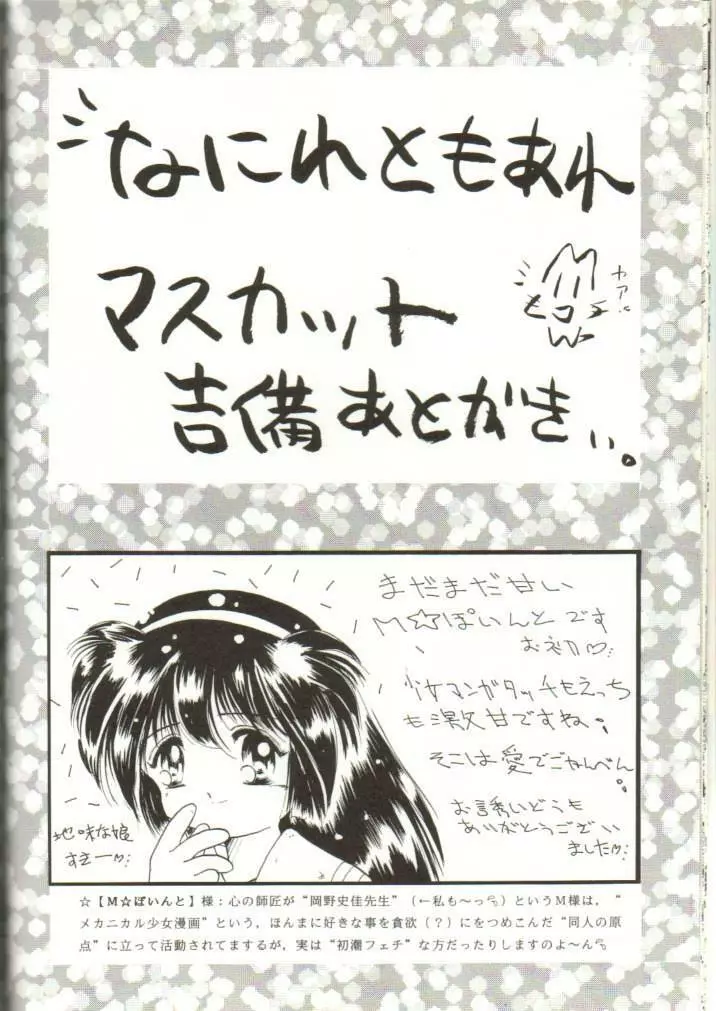 なにわともあれ
マスカット
吉備あとがき、、。
まだまだ甘い
M☆ぽいんとです
お初♡
少女マンガタッチもえっち
も激甘ですね。
そこは愛でごかんべん。
お誘いどうも
ありがとうござい
ました♡
地味な娘
すきー♡
☆【M☆ぽいんと】様：心の師匠が“岡野史佳先生”（←私も〜っ）というM様は，“
メカニカル少女漫画”という，ほんまに好きな事を貪欲（？）にをつめこんだ“同人の原
点”に立って活動されてまするが，実は“初潮フェチ”な方だったりしますのよ〜ん